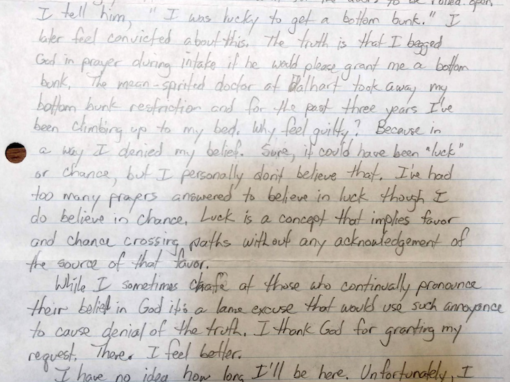 I tell him, "I was lucky to get a bottom bunk." I
later feel convicted about this. The truth is that I begged
God in prayer during intake if he would please grant me a bottom
bunk. The mean-spirited doctor at Dalhart took away my
bottom bunk restriction and for the past three years I've
been climbing up to my bed. Why feel guilty? Because in
a way I denied my belief. Sure, it could have been "luck"
or chance, but I personally don't believe that. I've had
too many prayers answered to believe in luck though I
do believe in chance. Luck is a concept that implies favor
and chance crossing paths without any acknowledgement of
the source of that favor.
While I sometimes chafe at those who continually pronounce
their belief in God it's a lame excuse that would use such annoyance
to cause denial of the truth. I thank God for granting my
request. There. I feel better.
I have no idea how long I'll be here. Unfortunately, I